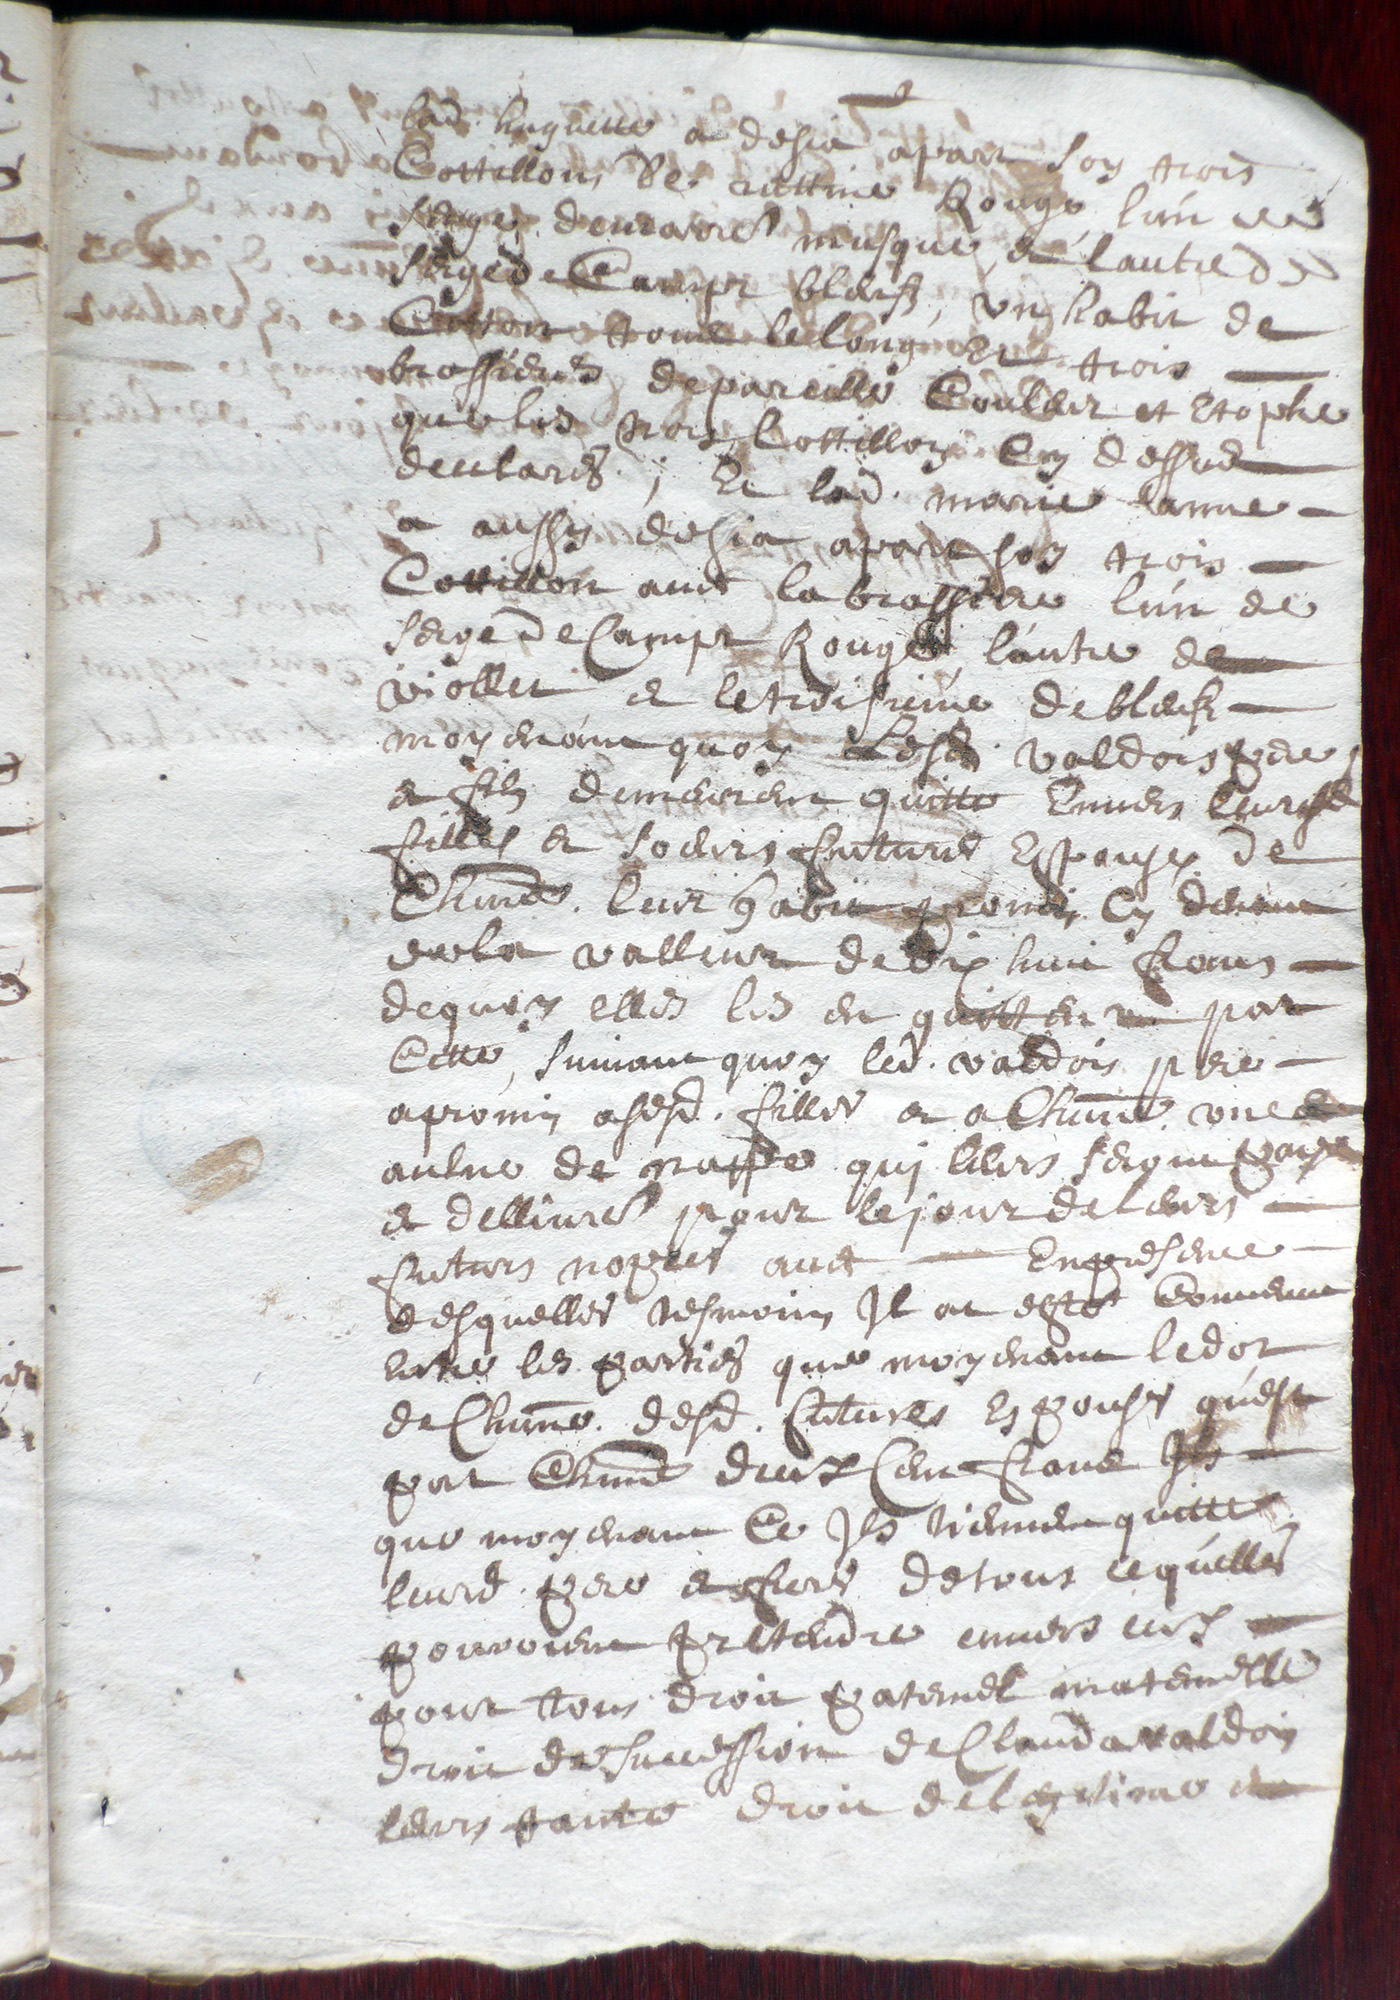 lad. huguette a desia apart soy trois
Cottillons de rattine Rouge, lun de
serge demaitre musque, et lautre de
serge de Camps bleufz, un habit de
Cotton tout le long Et trois
brassieres depareille Couller et Etophe
que les trois Cottillons Cy dessus
declarés ; Et lad. marie anne
a aussy desia apart soy trois
Cottillon avec la brassiere lun de
serge de Camps Rouge, lautre de
viollet et le troisieme de bleufz
moyenant quoy Lesd. valdois pere
et filz demeurent quitte Envers leursd.
filles et soeurs futures Espouses de
Chune. leur habit promis Cy devant
de la valleur de dix huit frans
dequoy elles les en quittent par
Cette, suivant quoy led. valdois pere
a promis a sesd. filles et a Chune. une
aulne de nappe qui leurs seront paye
et dellivré pour le jour de leurs
futurs nopces avec En presence
desquelles tesmoins Il at esté Convenut
entre les parties que moyenant le dot
de Chune. desd. futures Espouses quest
par Chune deux Cent frans
que moyenant Ce Ils tiennent quitte
leurd. pere et frere de tous ce qu'elles
pouroient pretendre envers eux
pour tous droit paternel maternelle
droit de succession de Clauda valdois
leurs tante droit de legitime et